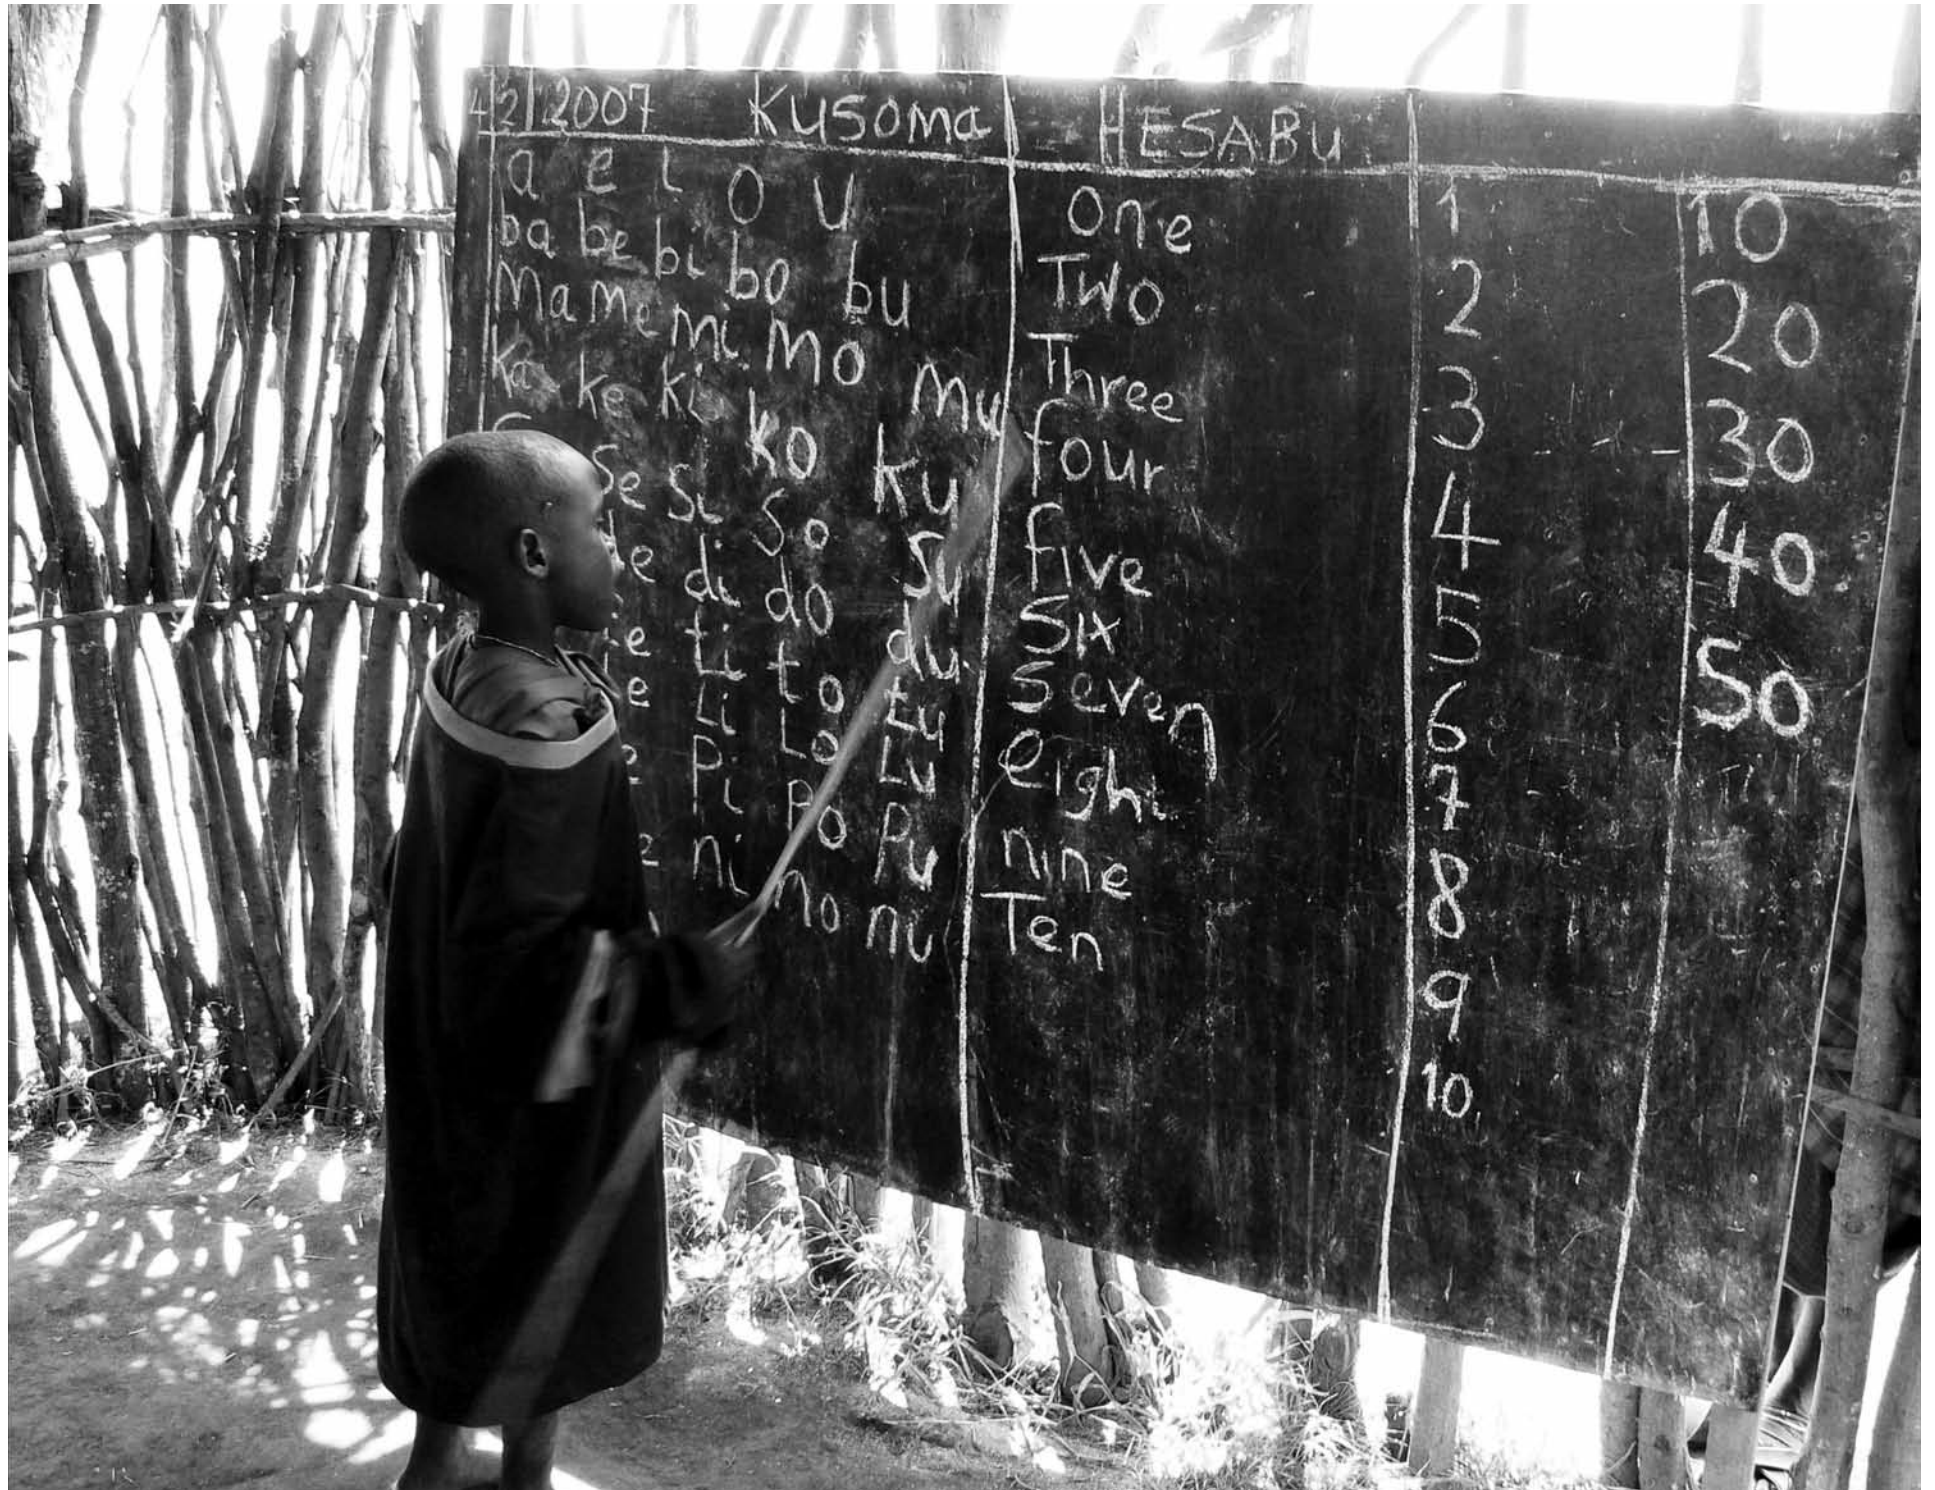 4/2/2007 Kusoma HESABU
a e i o u
ba be bi bo bu
Ma Me Mi Mo Mu
Ka ke ki ko ku
Se Si So Su
di do du
ti to tu
Li Lo Lu
Pi Po Pu
ni no nu
One
Two
Three
four
five
Six
Seven
eight
nine
Ten
1
2
3
4
5
6
7
8
9
10
10
20
30
40
50